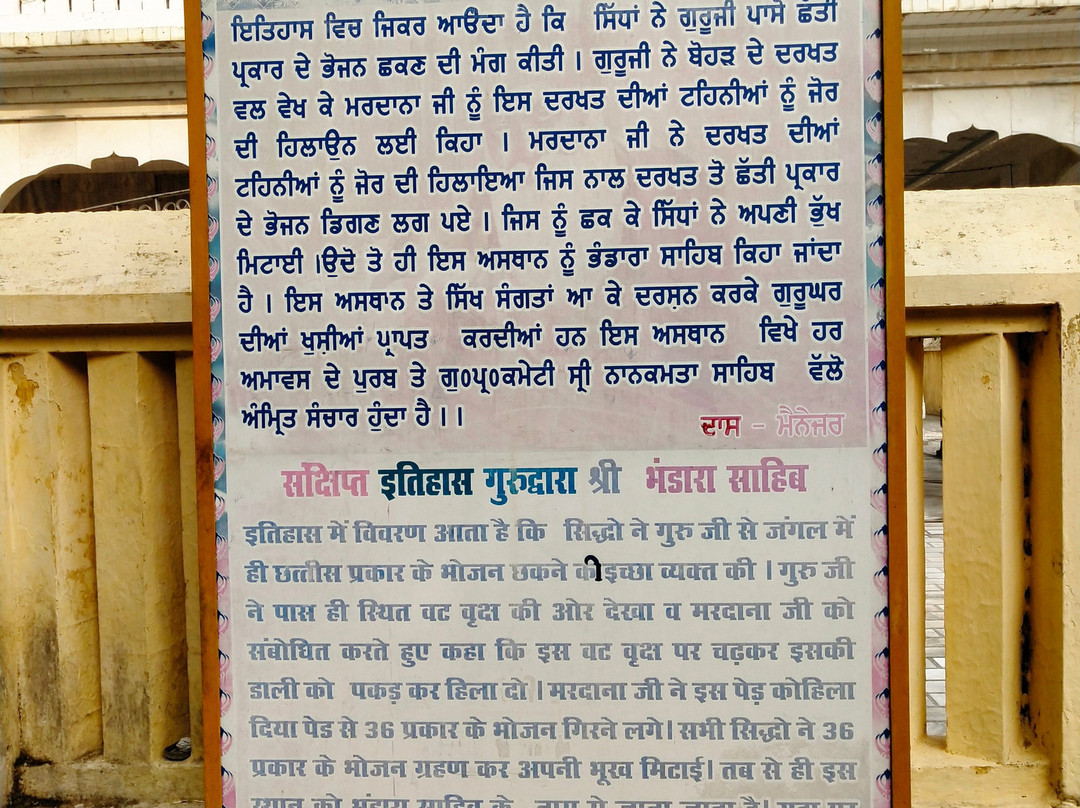 ਇਤਿਹਾਸ ਵਿਚ ਜਿਕਰ ਆਉਂਦਾ ਹੈ ਕਿ ਸਿੱਧਾਂ ਨੇ ਗੁਰੂਜੀ ਪਾਸੋ ਛੱਤੀ
ਪ੍ਰਕਾਰ ਦੇ ਭੋਜਨ ਛਕਣ ਦੀ ਮੰਗ ਕੀਤੀ । ਗੁਰੂਜੀ ਨੇ ਬੋਹੜ ਦੇ ਦਰਖਤ
ਵਲ ਵੇਖ ਕੇ ਮਰਦਾਨਾ ਜੀ ਨੂੰ ਇਸ ਦਰਖਤ ਦੀਆਂ ਟਹਿਨੀਆਂ ਨੂੰ ਜੋਰ
ਦੀ ਹਿਲਾਉਨ ਲਈ ਕਿਹਾ । ਮਰਦਾਨਾ ਜੀ ਨੇ ਦਰਖਤ ਦੀਆਂ
ਟਹਿਨੀਆਂ ਨੂੰ ਜੋਰ ਦੀ ਹਿਲਾਇਆ ਜਿਸ ਨਾਲ ਦਰਖਤ ਤੋ ਛੱਤੀ ਪ੍ਰਕਾਰ
ਦੇ ਭੋਜਨ ਡਿਗਣ ਲਗ ਪਏ । ਜਿਸ ਨੂੰ ਛਕ ਕੇ ਸਿੱਧਾਂ ਨੇ ਅਪਣੀ ਭੁੱਖ
ਮਿਟਾਈ ।ਉਦੋ ਤੋ ਹੀ ਇਸ ਅਸਥਾਨ ਨੂੰ ਭੰਡਾਰਾ ਸਾਹਿਬ ਕਿਹਾ ਜਾਂਦਾ
ਹੈ । ਇਸ ਅਸਥਾਨ ਤੇ ਸਿੱਖ ਸੰਗਤਾਂ ਆ ਕੇ ਦਰਸ਼ਨ ਕਰਕੇ ਗੁਰੂਘਰ
ਦੀਆਂ ਖੁਸ਼ੀਆਂ ਪ੍ਰਾਪਤ ਕਰਦੀਆਂ ਹਨ ਇਸ ਅਸਥਾਨ ਵਿਖੇ ਹਰ
ਅਮਾਵਸ ਦੇ ਪੁਰਬ ਤੇ ਗੁ0ਪ੍ਰ0ਕਮੇਟੀ ਸ੍ਰੀ ਨਾਨਕਮਤਾ ਸਾਹਿਬ ਵੱਲੋ
ਅੰਮ੍ਰਿਤ ਸੰਚਾਰ ਹੁੰਦਾ ਹੈ ।।
ਦਾਸ - ਮੈਨੇਜਰ
संक्षिप्त इतिहास गुरुद्वारा श्री भंडारा साहिब
इतिहास में विवरण आता है कि सिद्धो ने गुरु जी से जंगल में
ही छत्तीस प्रकार के भोजन छकने की इच्छा व्यक्त की । गुरु जी
ने पास ही स्थित वट वृक्ष की ओर देखा व मरदाना जी को
संबोधित करते हुए कहा कि इस वट वृक्ष पर चढ़कर इसकी
डाली को पकड़ कर हिला दो । मरदाना जी ने इस पेड़ कोहिला
दिया पेड से 36 प्रकार के भोजन गिरने लगे। सभी सिद्धो ने 36
प्रकार के भोजन ग्रहण कर अपनी भूख मिटाई। तब से ही इस
स्थान को भंडारा साहिब के नाम से जाना जाता है।